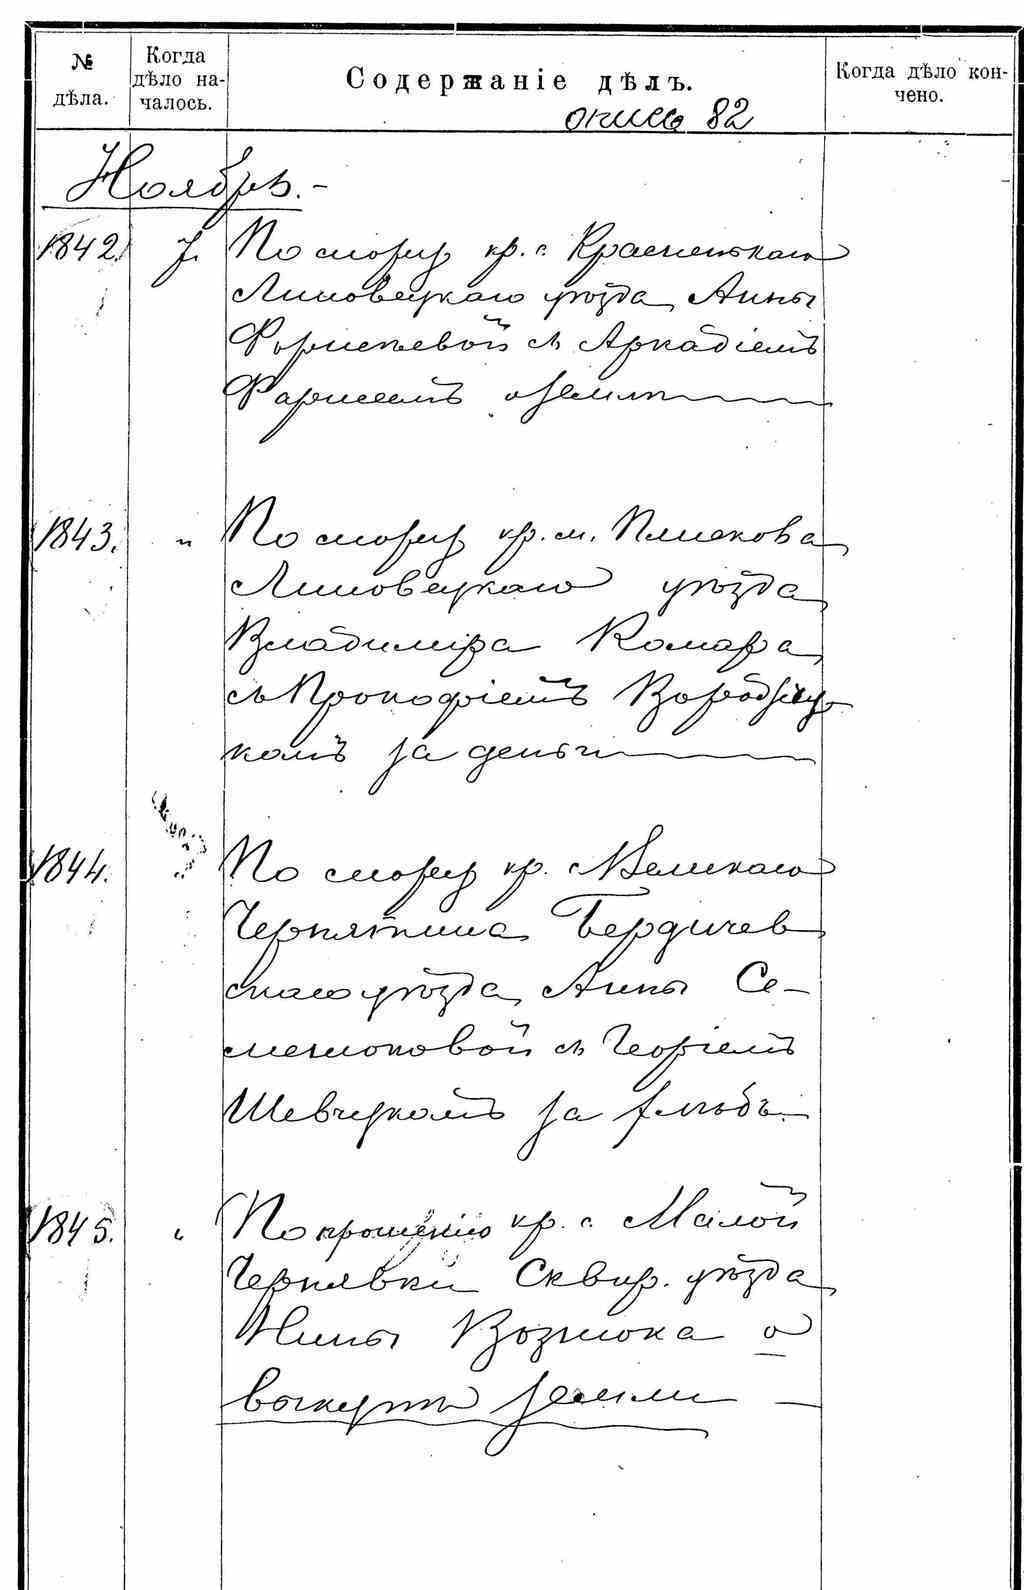 № дѣла.
Когда дѣло на-
чалось.
Содержаніе дѣлъ.
Когда дѣло кон-
чено.
опись 82
Ноябрь.-
1842. 7. По спору кр. с. Красненькаго
Липовецкаго уѣзда Анны
съ Аркадіемъ
о землѣ
1843. " По спору кр. м. Плискова
Липовецкаго уѣзда
Владиміра Комара
съ Прокофіемъ
комъ за деньги
1844. По спору кр. с. Великаго
Чернятина Бердичев
скаго уѣзда Анны Се-
менюковой съ Георгіемъ
Шевчукомъ за хлѣбъ.
1845. " По прошенію кр. с. Малой
Чернявки Сквир. уѣзда
Вознюка о
выкупѣ земли —